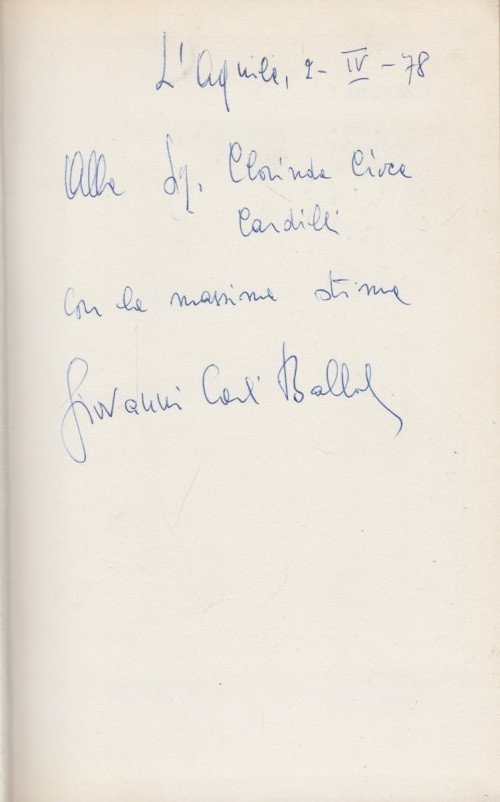 L'Aquila, 2-IV-78
Alla Sig. Clorinda Circe
Cardilli
con la massima stima
Giovanni Carli Ballola